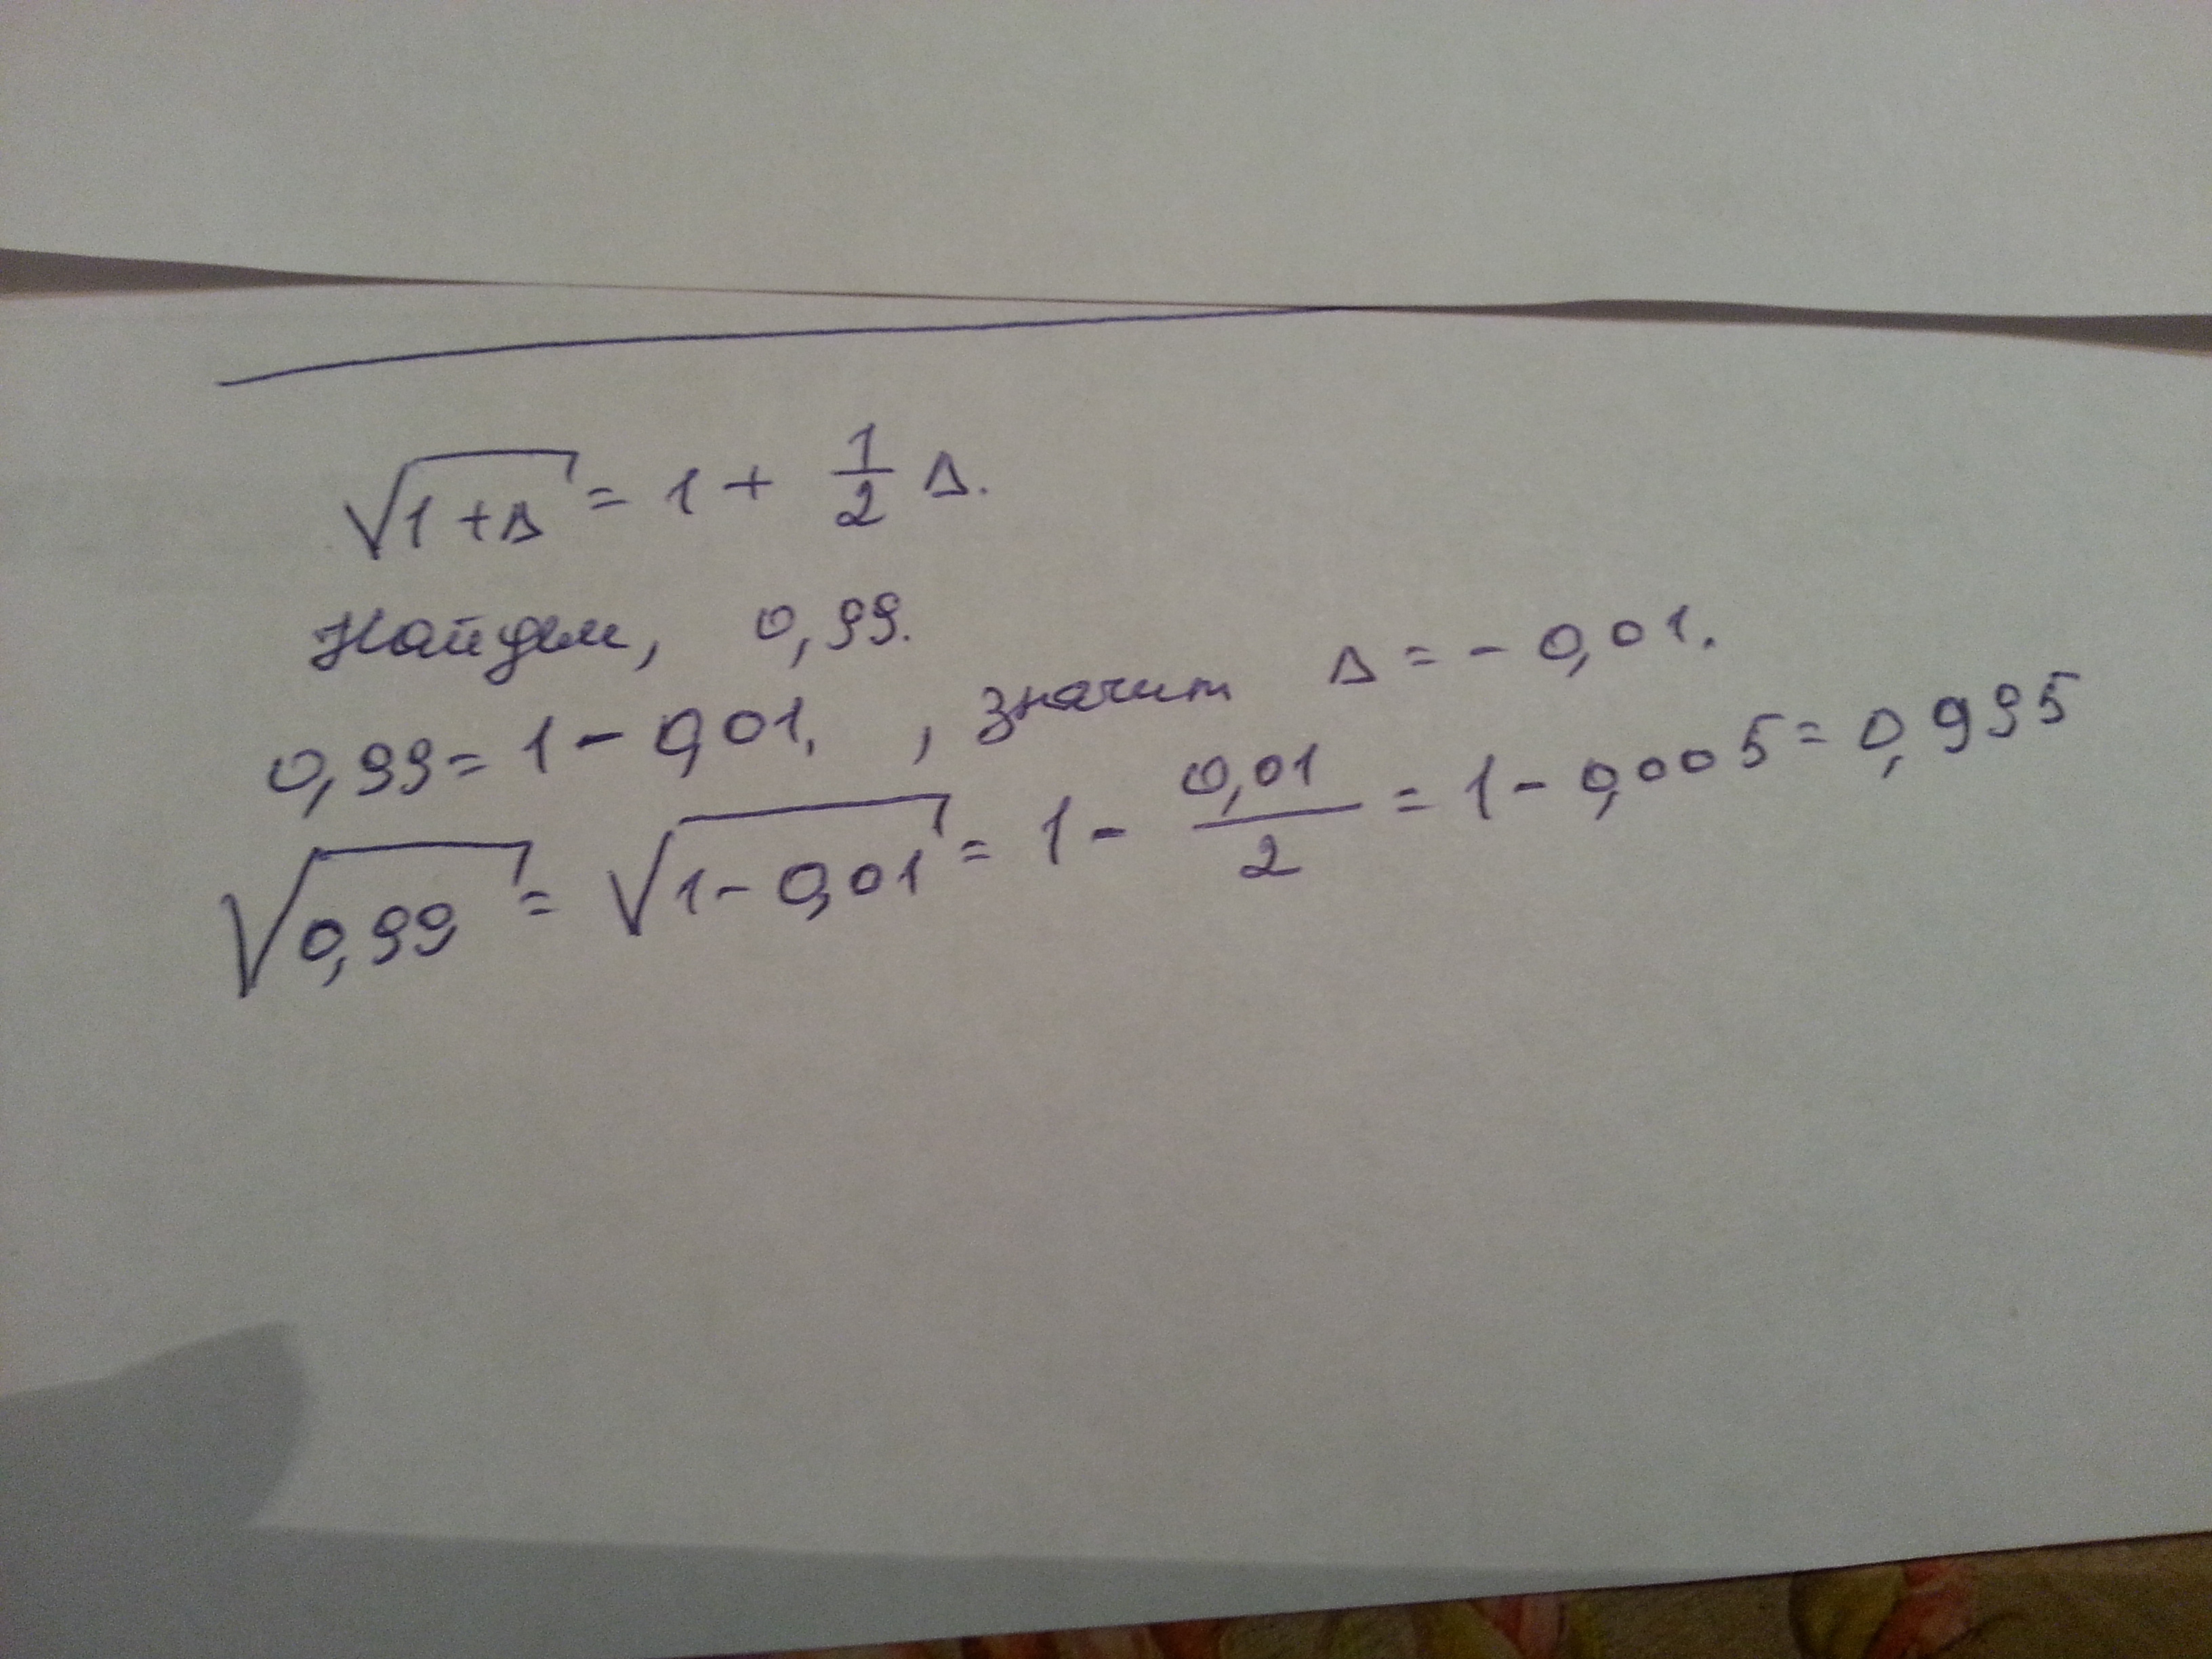 √(1+Δ) = 1 + 1/2 Δ.
Найдем, 0,99.
0,99 = 1 - 0,01. , значит Δ = - 0,01.
√0,99 = √(1 - 0,01) = 1 - 0,01/2 = 1 - 0,005 = 0,995